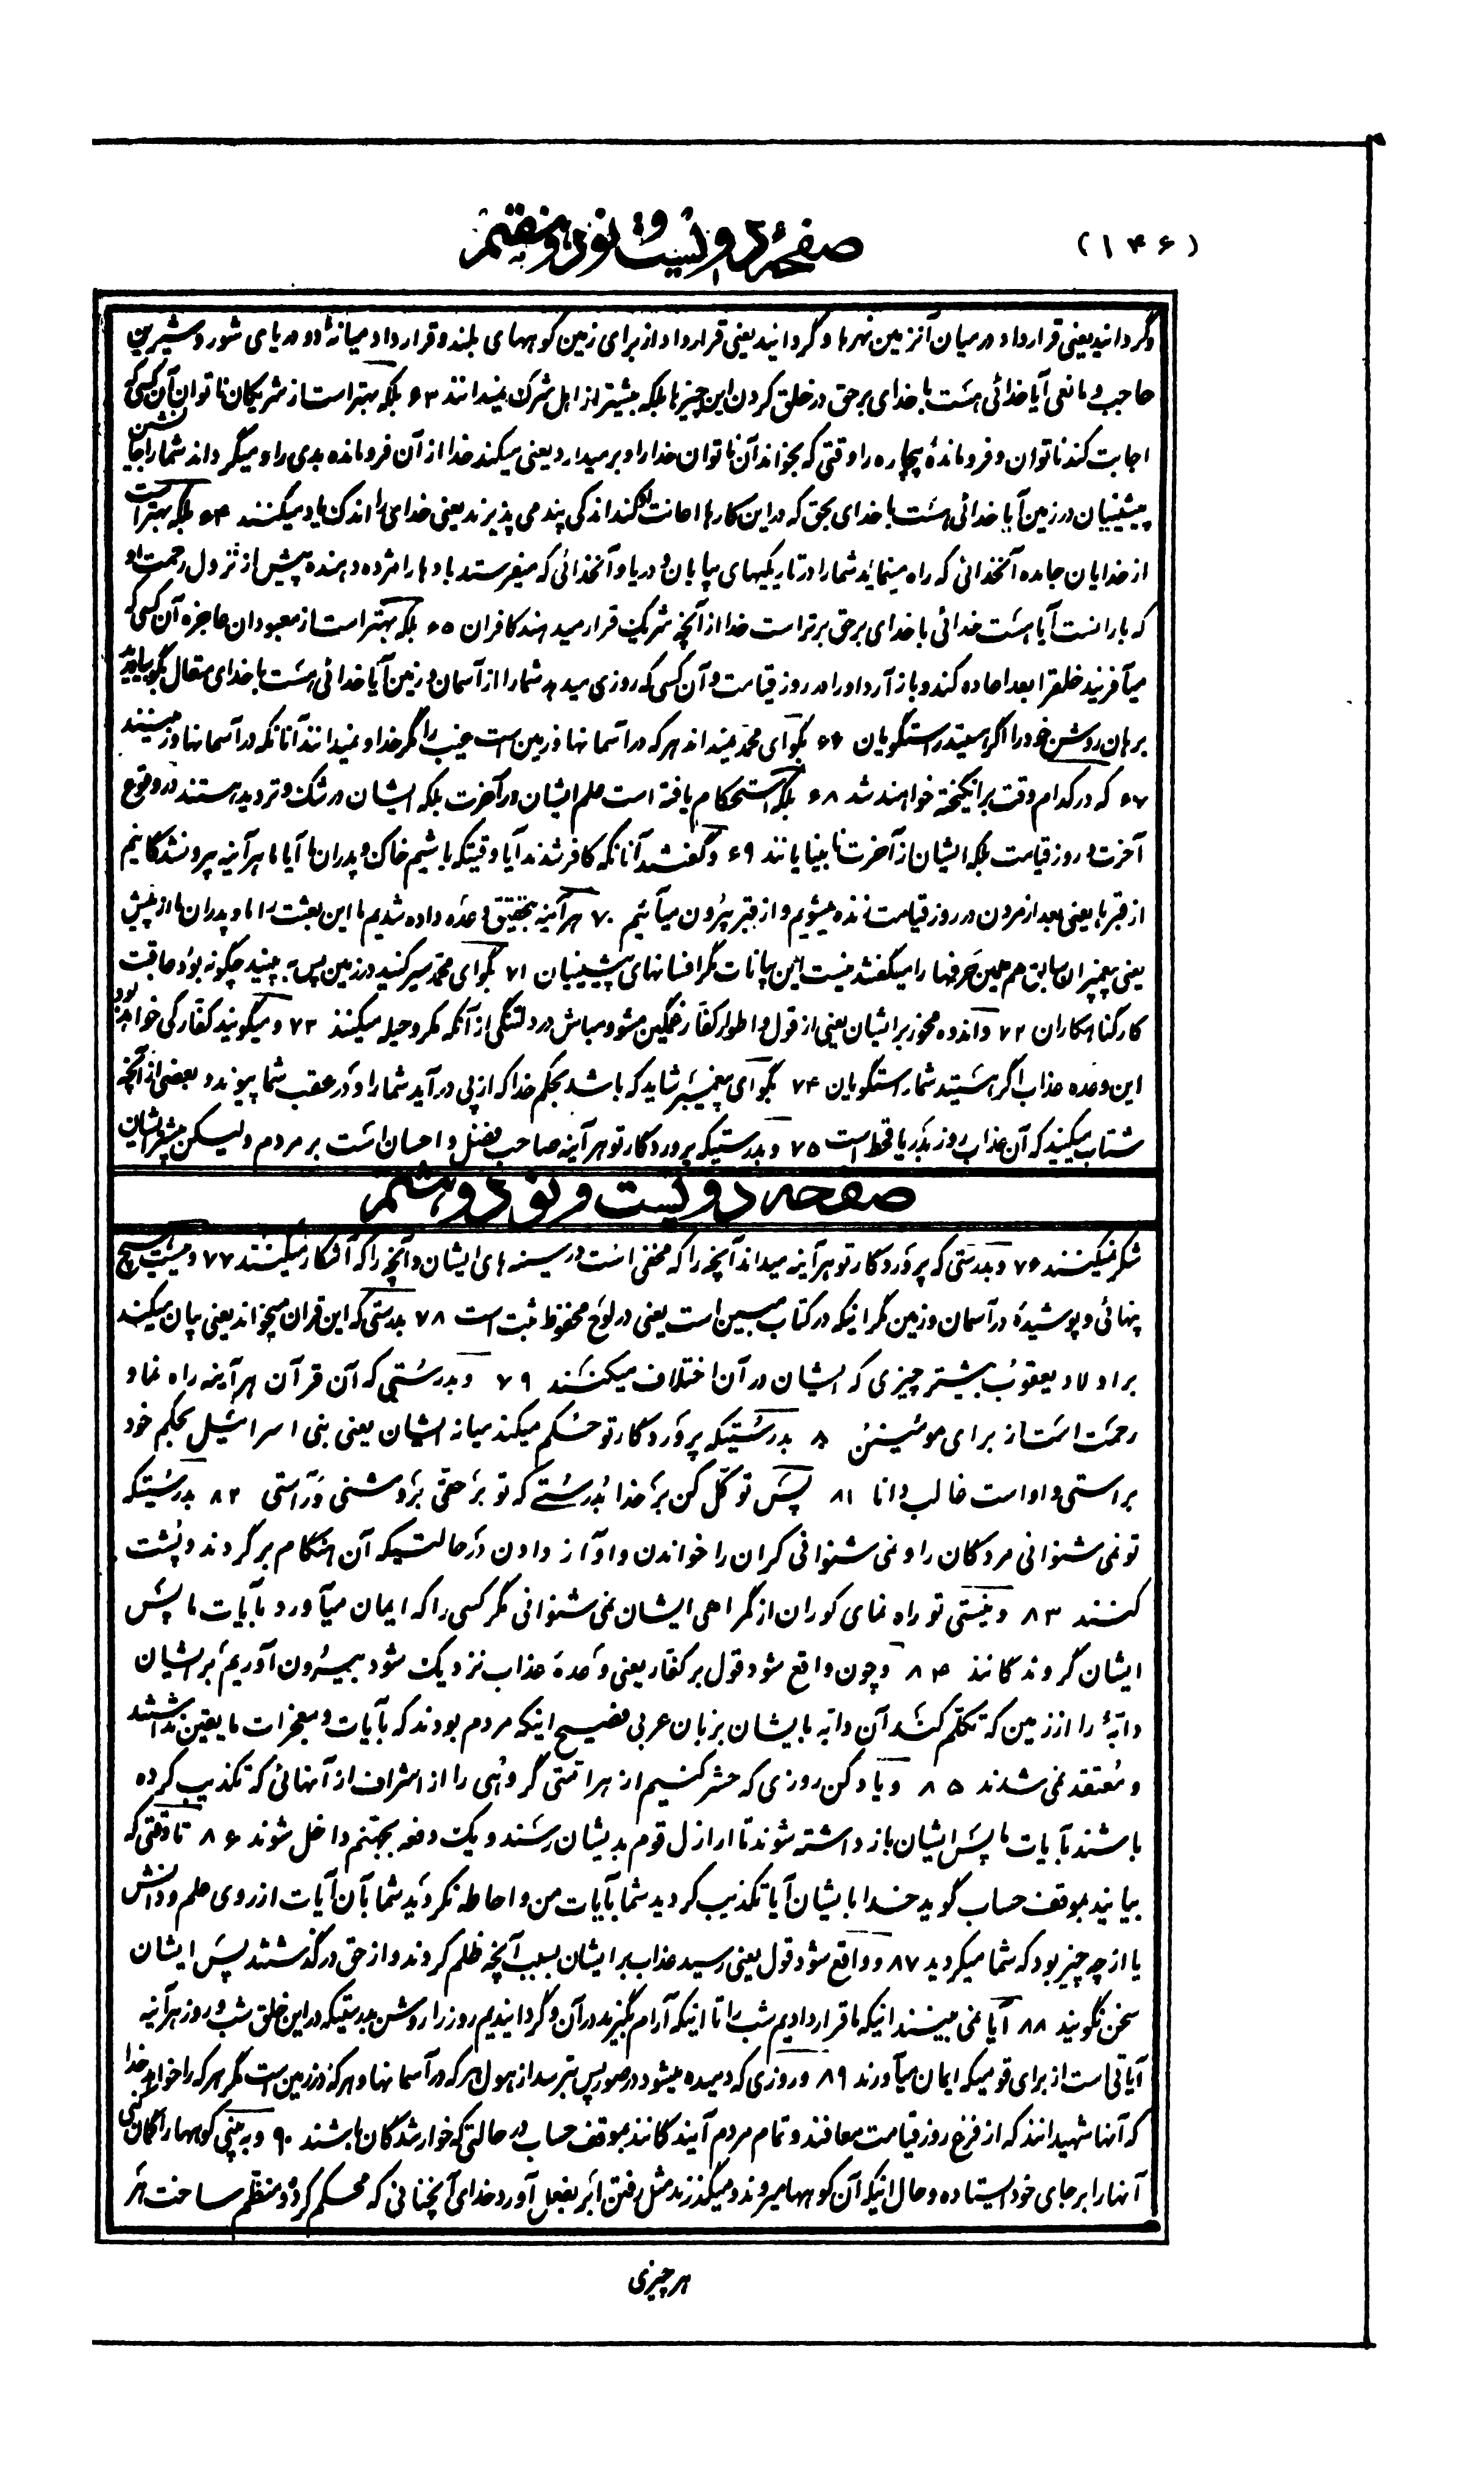 (۱۴۶)
صفحهٔ دویست و نود و هفتم
وگردانید یعنی قرار داد در میان آنزمین نهرها و گردانید یعنی قرار داد از برای زمین کوههای بلند و قرار داد میانهٔ دو دریای شور و شیرین
حاجب و مانعی آیا خدائی هست با خدای برحق در خلق کردن این چیزها بلکه بیشتر از اهل شرک نمیدانند ۶۳ بلکه بهتر است از شریکان ناتوان آن کسی که
اجابت کند ناتوان و فروماندهٔ بیچاره را وقتی که بخواند آن ناتوان خدا را و برمیدارد یعنی میکند خدا از آن فرومانده بدی را و میگرداند شما را جانشین
پیشینیان در زمین آیا خدائی هست با خدای بحق که در این کارها اعانت او کند اندکی پند می پذیرند یعنی خدای را اندک یاد میکنند ۶۴ بلکه بهتر است
از خدایان جامده آنخدائی که راه مینماید شما را در تاریکیهای بیابان و دریا و آنخدائی که میفرستد بادها را مژده دهنده پیش از نزول رحمت او
که بارانست آیا هست خدائی با خدای برحق برتر است خدا از آنچه شریک قرار میدهند کافران ۶۵ بلکه بهتر است از معبودان عاجزه آن کسی که
میآفرنید خلقرا بعد اعاده کند و باز آرد او را در روز قیامت و آن کسی که روزی میدهد شما را از آسمان و زمین آیا خدائی هست با خدای متعال بگو بیاورید
برهان روشن خود را اگر هستید راستگویان ۶۶ بگو ای محمد نمیداند هر که در آسمانها و زمین است غیب را مگر خدا و نمیدانند آنانکه در آسمانها و زمینند
۶۷ که در کدام وقت برانگیخته خواهند شد ۶۸ بلکه استحکام یافته است علم ایشان در آخرت بلکه ایشان در شک و تردید هستند در وقوع
آخرت و روز قیامت بلکه ایشان از آخرت نابینایانند ۶۹ و گفتند آنانکه کافر شدند آیا وقتیکه باشیم خاک و پدران ما آیا ما هر آینه بیرون شدگانیم
از قبرها یعنی بعد از مردن در روز قیامت زنده میشویم و از قبر بیرون میآئیم ۷۰ هر آینه بتحقیق وعده داده شدیم ما این بعثت را ما و پدران ما از پیش
یعنی پیمبران سابق هم همین حرفها را میگفتند نیست این بیانات مگر افسانهای پیشینیان ۷۱ بگو ای محمد سیر کنید در زمین پس به بینید چگونه بود عاقبت
کار گناهکاران ۷۲ و اندوه مخور بر ایشان یعنی از قول و اطوار کفار غمگین مشو و مباش در دلتنگی از آنکه مکر و حیله میکنند ۷۳ و میگویند کفار کی خواهد بود
این وعده عذاب اگر هستید شما راستگویان ۷۴ بگو ای پیغمبر شاید که باشد بحکم خدا که از پی در آید شما را و در عقب شما پیوندد بعضی از آنچه
شتاب میکنید که آن عذاب روز بدر یا قحط است ۷۵ و بدرستیکه پروردگار تو هر آینه صاحب فضل و احسان است بر مردم و لیکن بیشتر ایشان
صفحه دویست و نود و هشتم
شکر نمیکنند ۷۶ و بدرستی که پروردگار تو هر آینه میداند آنچه را که مخفی است در سینه های ایشان و آنچه را که آشکار میکنند ۷۷ و نیست هیچ
پنهائی و پوشیدهٔ در آسمان و زمین مگر اینکه در کتاب مبین است یعنی در لوح محفوظ ثبت است ۷۸ بدرستی که این قران میخواند یعنی بیان میکند
بر اولاد یعقوب بیشتر چیزی که ایشان در آن اختلاف میکنند ۷۹ و بدرستی که آن قرآن هر آینه راه نما و
رحمت است از برای مومنین ۸۰ بدرستیکه پروردگار تو حکم میکند میانه ایشان یعنی بنی اسرائیل بحکم خود
براستی و او است غالب دانا ۸۱ پس توکل کن بر خدا بدرستے که تو بر حقی بر روشنی و راستی ۸۲ بدرستیکه
تو نمی شنوانی مردگان را و نمی شنوانی کران را خواندن و آواز دادن در حالتیکه آن هنگام برگردند و پشت
کنند ۸۳ و نیستی تو راه نمای کوران از گمراهی ایشان نمی شنوانی مگر کسی را که ایمان میآورد بآیات ما پس
ایشان گروندگانند ۸۴ و چون واقع شود قول بر کفار یعنی وعدهٔ عذاب نزدیک شود بیرون آوریم بر ایشان
دابهٔ را از زمین که تکلم کند آن دابه با ایشان بزبان عربی فصیح اینکه مردم بودند که بآیات و معجزات ما یقین نداشتند
و معتقد نمی شدند ۸۵ و یاد کن روزی که حشر کنیم از هر امتی گروهی را از اشراف از آنهائی که تکذیب کرده
باشند بآیات ما پس ایشان باز داشته شوند تا اراذل قوم بدیشان رسند و یک دفعه بجهنم داخل شوند ۸۶ تا وقتی که
بیایند بموقف حساب گوید خدا بایشان آیا تکذیب کردید شما بآیات من و احاطه نکردید شما بآن آیات از روی علم و دانش
یا از چه چیز بود که شما میکردید ۸۷ و واقع شود قول یعنی رسید عذاب بر ایشان بسبب آنچه ظلم کردند و از حق درگذشتند پس ایشان
سخن نگویند ۸۸ آیا نمی بینند اینکه ما قرار دادیم شب را تا اینکه آرام بگیرند در آن و گردانیدیم روز را روشن بدرستیکه در این خلق شب و روز هر آینه
آیاتی است از برای قومیکه ایمان میآورند ۸۹ و روزی که دمیده میشود در صور پس بترسد از هول هر که در آسمانها و هر که در زمین است مگر هر که را خواهد خدا
که آنها شهیدانند که از فزع روز قیامت معافند و تمام مردم آیندگانند بموقف حساب در حالتی که خوار شدگان باشند ۹۰ و به بینی کوهها را گمان کنی
آنها را بر جای خود ایستاده و حال اینکه آن کوهها میروند و میگذرند مثل رفتن ابر بفعل آورد خدای آنچنانی که محکم کرد و منظم ساخت هر
هر چیزی